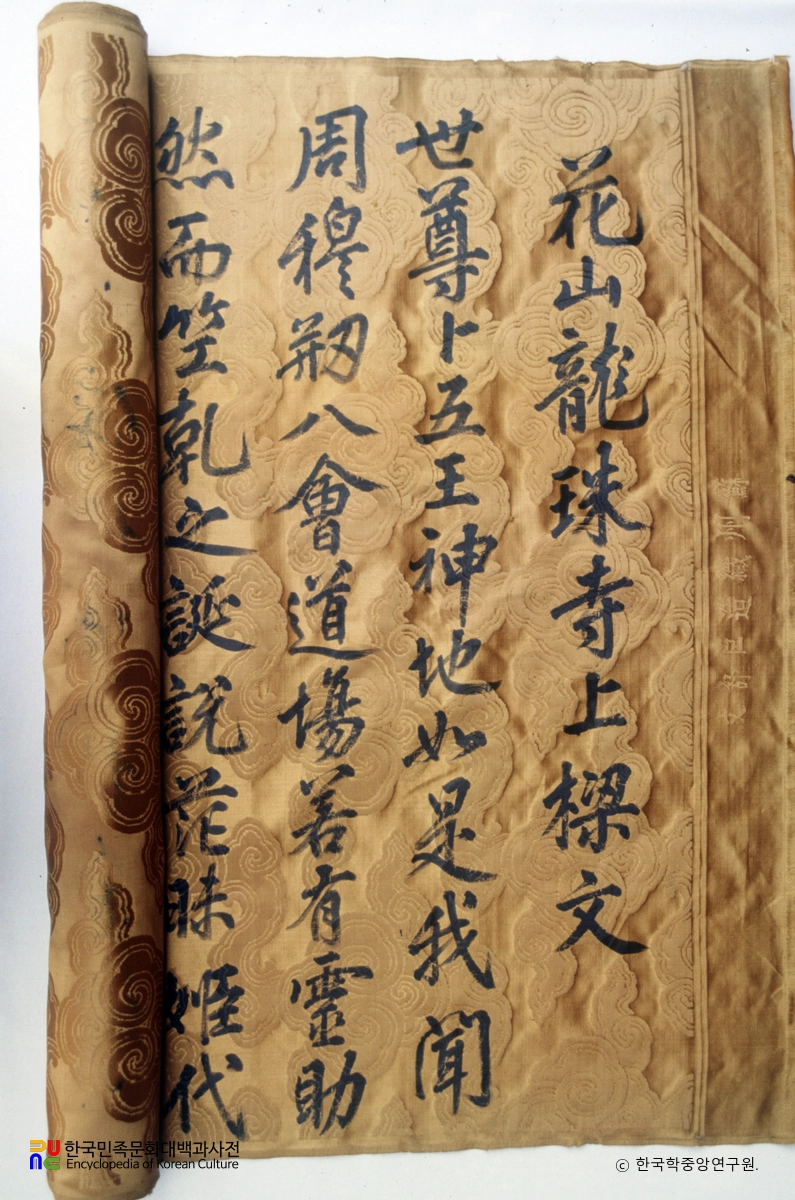 蘇州織造臣舒文
花山龍珠寺上樑文
世尊卜五王神地如是我聞
周穆剏八會道場若有靈助
然而竺乾之誕說茫昧姬代
한국민족문화대백과사전
Encyclopedia of Korean Culture
© 한국학중앙연구원.